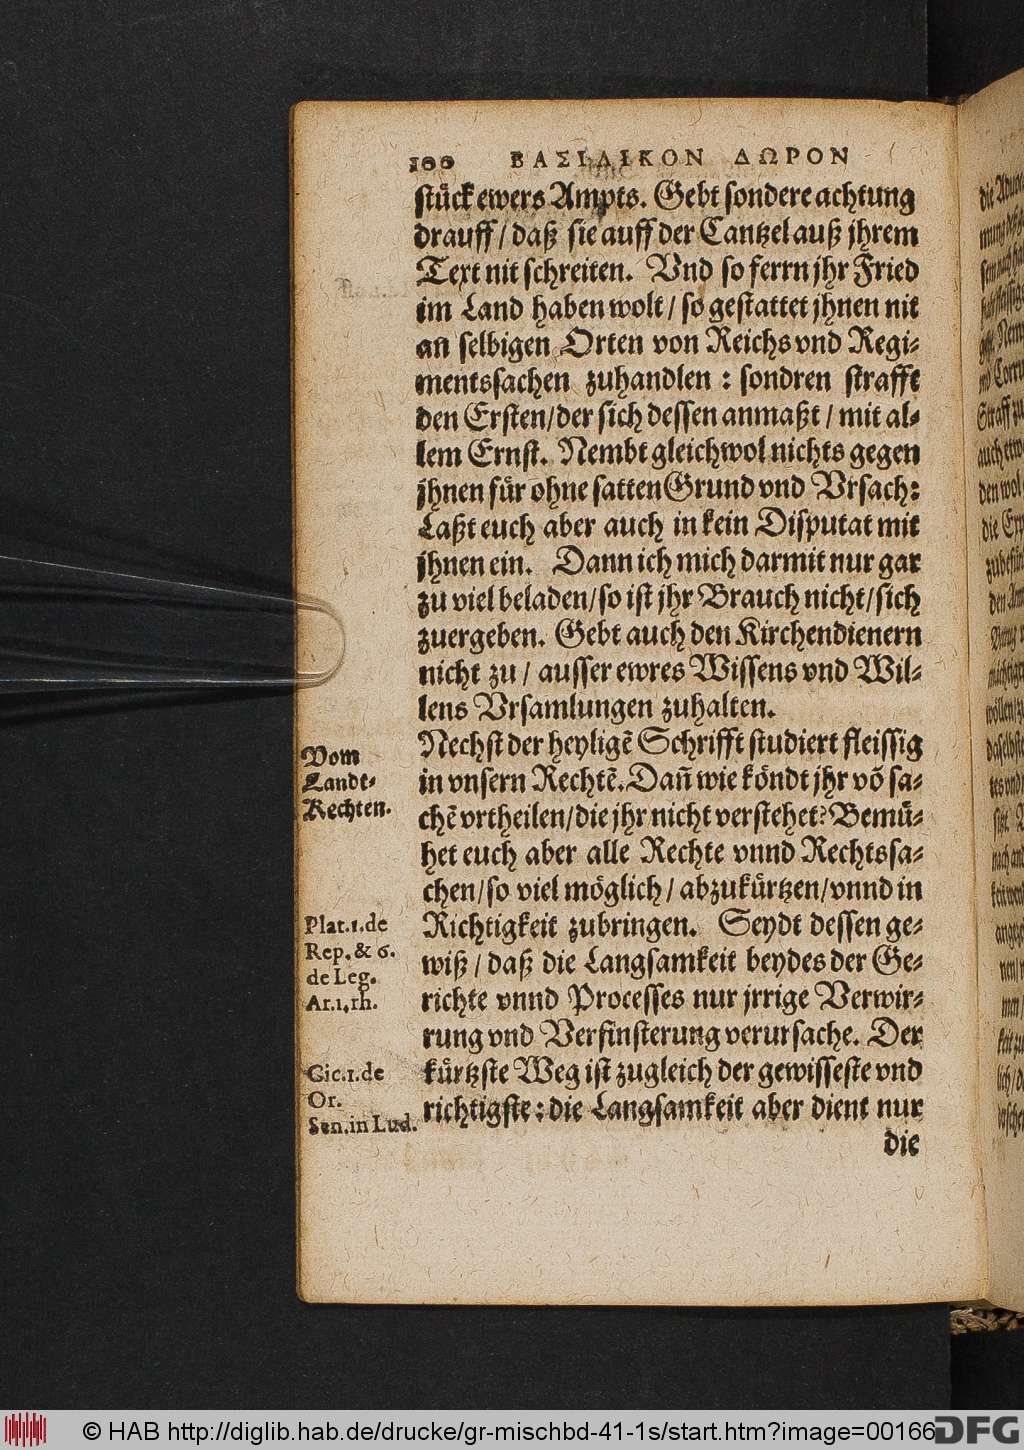 100 ΒΑΣΙΛΙΚΟΝ ΔΩΡΟΝ
stück ewers Ampts. Gebt sondere achtung
drauff / daß sie auff der Cantzel auß jhrem
Text nit schreiten. Vnd so ferrn jhr Fried
im Land haben wolt / so gestattet jhnen nit
an selbigen Orten von Reichs vnd Regi-
mentssachen zuhandlen : sondren strafft
den Ersten/der sich dessen anmaßt / mit al-
lem Ernst. Nembt gleichwol nichts gegen
jhnen für ohne satten Grund vnd Vrsach:
Laßt euch aber auch in kein Disputat mit
jhnen ein. Dann ich mich darmit nur gar
zu viel beladen/so ist jhr Brauch nicht/sich
zuergeben. Gebt auch den Kirchendienern
nicht zu / ausser ewres Wissens vnd Wil-
lens Vrsamlungen zuhalten.
Vom
Landt-
Rechten.
Nechst der heyligẽ Schrifft studiert fleissig
in vnsern Rechtẽ. Dañ wie köndt jhr võ sa-
chẽ vrtheilen/die jhr nicht verstehet? Bemü-
het euch aber alle Rechte vnnd Rechtssa-
chen/so viel möglich / abzukürtzen/vnnd in
Plat.1.de
Rep. & 6.
de Leg.
Ar.1.rh.
Richtigkeit zubringen. Seydt dessen ge-
wiß / daß die Langsamkeit beydes der Ge-
richte vnnd Processes nur jrrige Verwir-
rung vnd Verfinsterung verursache. Der
Cic.1.de
Or.
Sen.in Lud.
kürtzste Weg ist zugleich der gewisseste vnd
richtigste: die Langsamkeit aber dient nur
die
© HAB http://diglib.hab.de/drucke/gr-mischbd-41-1s/start.htm?image=00166
DFG